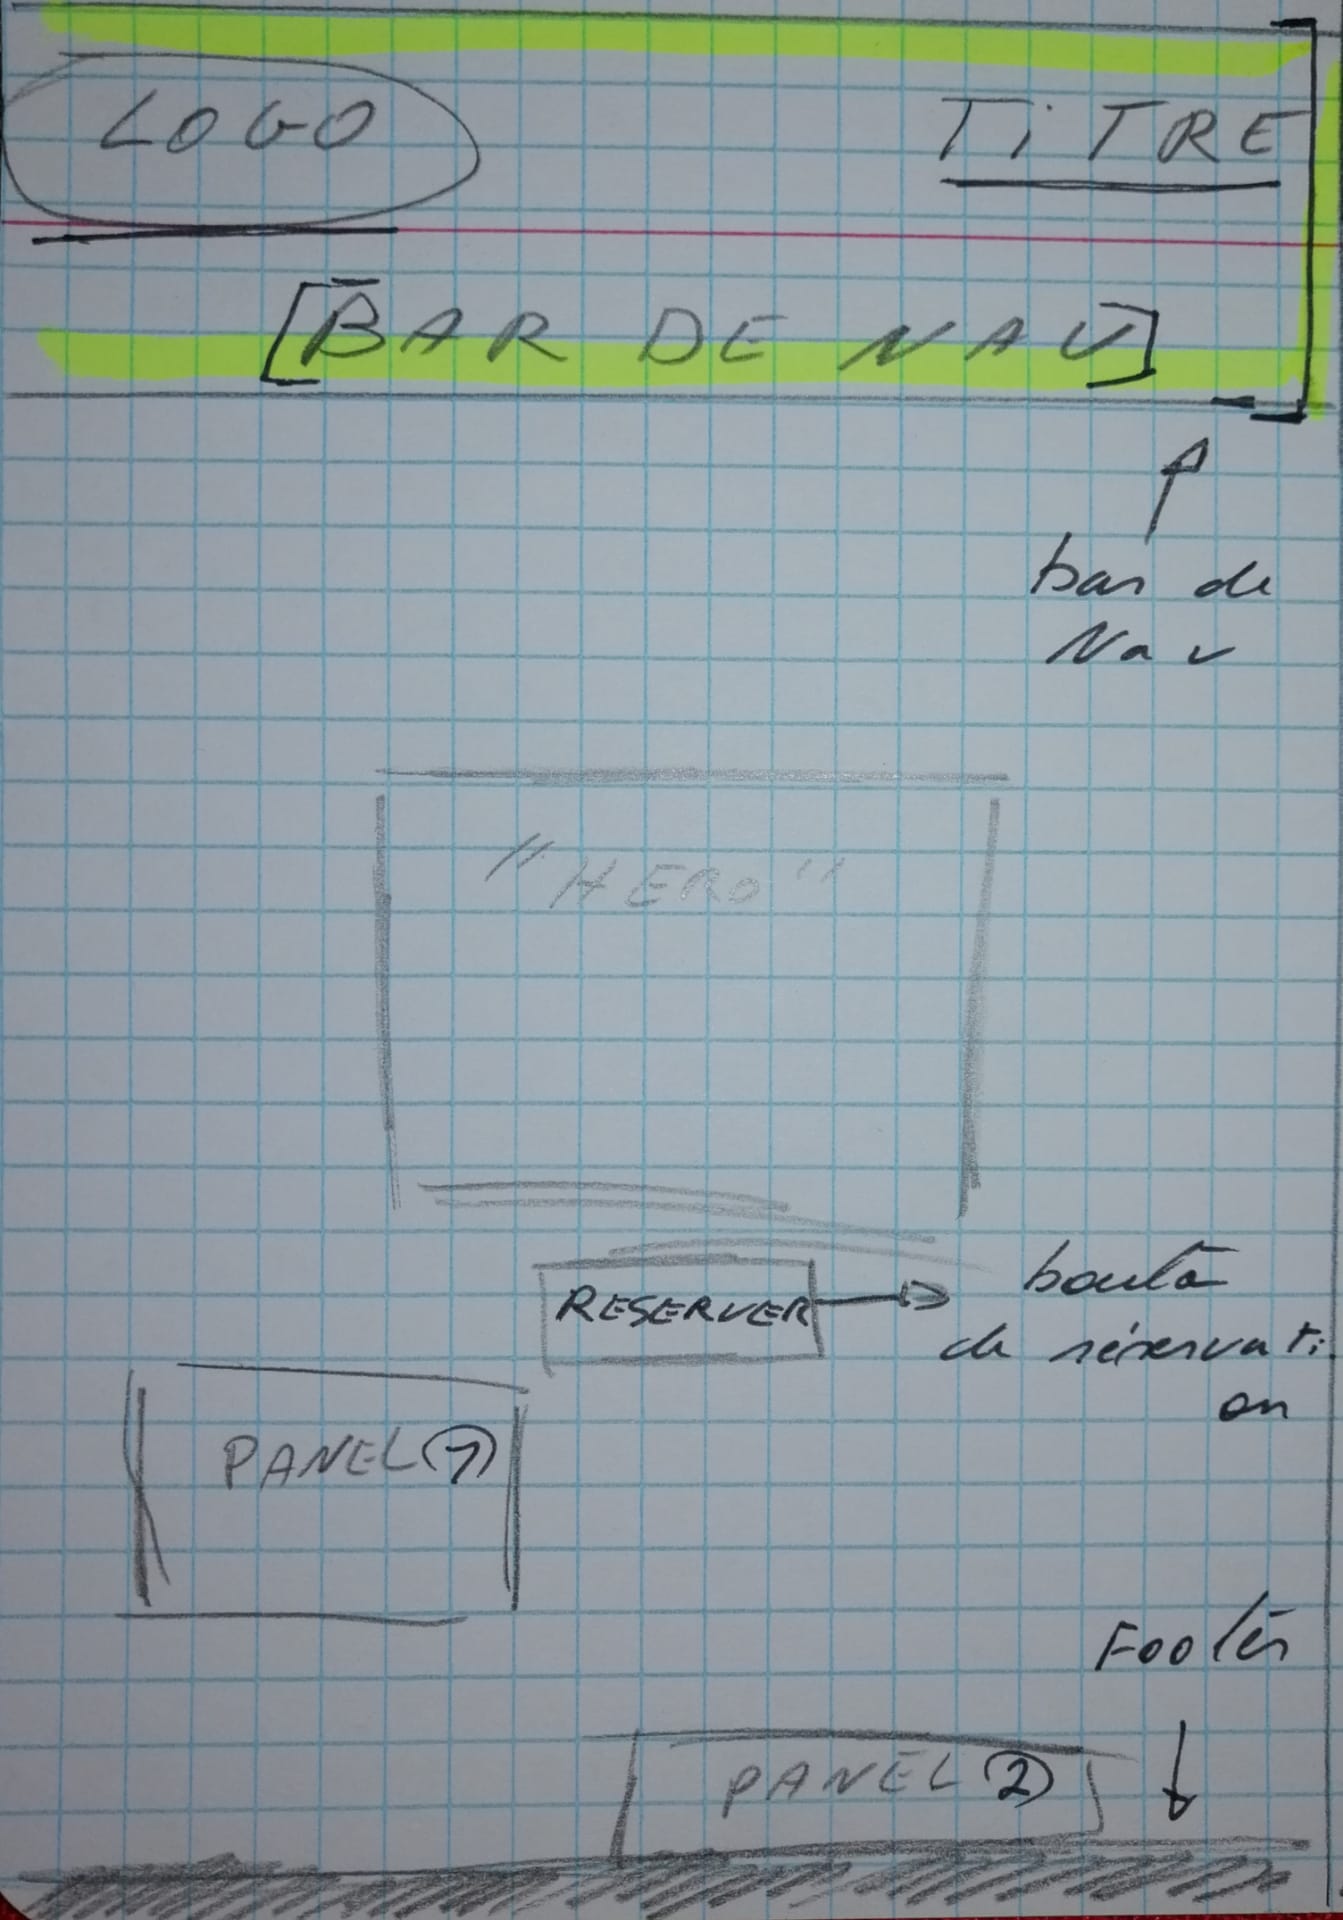 LOGO
TiTRE
[BAR DE NAV]
bar de
Nav
"HERO"
RESERVER
bouton
de réservati
on
PANEL 1
Footer
PANEL 2